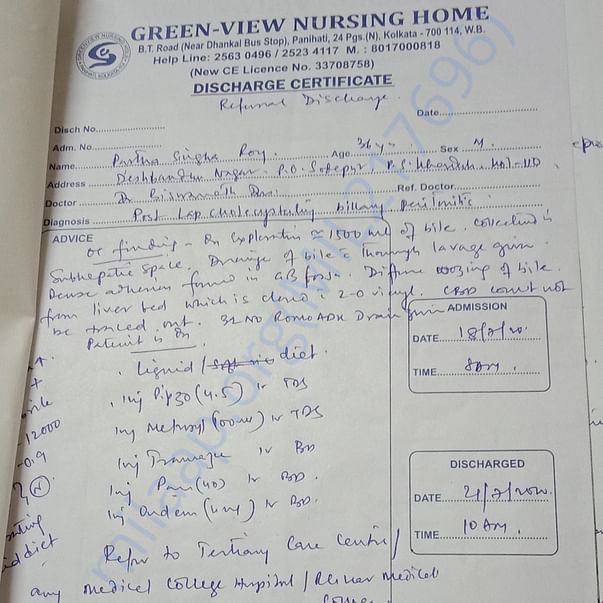 GREEN-VIEW NURSING HOME
B.T. Road (Near Dhankal Bus Stop), Panihati, 24 Pgs.(N), Kolkata - 700 114, W.B.
Help Line: 2563 0496 / 2523 4117 M. : 8017000818
(New CE Licence No. 33708758)
DISCHARGE CERTIFICATE
Referral Discharge
Disch No. Date
Adm. No.
Name Partha Singha Roy Age 36 y Sex M.
Address Deshbandhu Nagar P.O. Sodepur, P.S. Khardah,
Doctor Dr Biswanath Ref. Doctor
Diagnosis Post Lap cholecystectomy biliary peritonitis
ADVICE
OT finding - On Exploration ≈ 1500 ml of bile. collected in
Subhepatic space. Drainage of bile & thorough lavage given.
Dense adhesion found in GB fossa. Diffuse oozing of bile
from liver bed which is closed 2-0 vicryl. CBD could not
be traced out. 32 NO ROMO ADK Drain given
Patient is on
ADMISSION
DATE
TIME 8am.
. Liquid / diet.
. Inj Pipzo (4.5) IV TDS
Inj Metrogyl (100ml) IV TDS
-12000
Inj IV BD
-0.9
Inj Pan (40) IV BD.
Inj Ondem (4mg) IV BD.
DISCHARGED
DATE
TIME 10 AM.
Refer to Tertiary Care Centre /
any Medical College Hospital / Medical
milaap.org